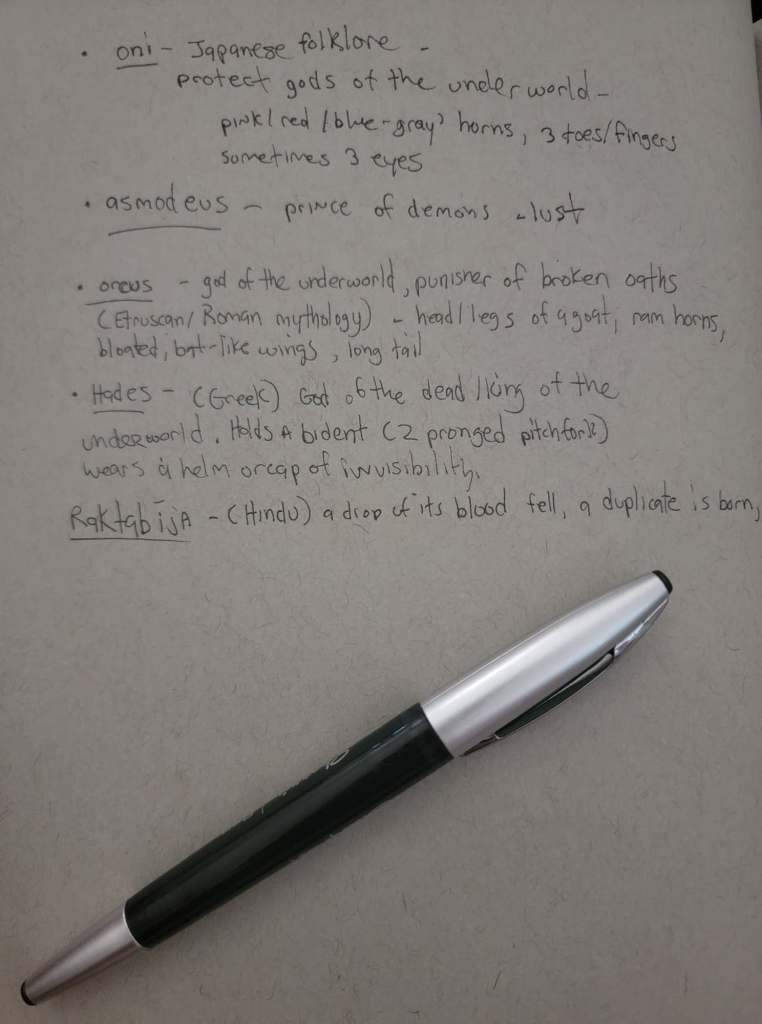 • oni - Japanese folklore -
protect gods of the underworld -
pink/red/blue-gray, horns, 3 toes/fingers
sometimes 3 eyes
• asmodeus - prince of demons - lust
• orcus - god of the underworld, punisher of broken oaths
(Etruscan/Roman mythology) - head/legs of a goat, ram horns,
bloated, bat-like wings, long tail
• Hades - (Greek) God of the dead/king of the
underworld. Holds A bident (2 pronged pitchfork)
wears a helm or cap of invisibility.
RaktabījA - (Hindu) a drop of its blood fell, a duplicate is born,